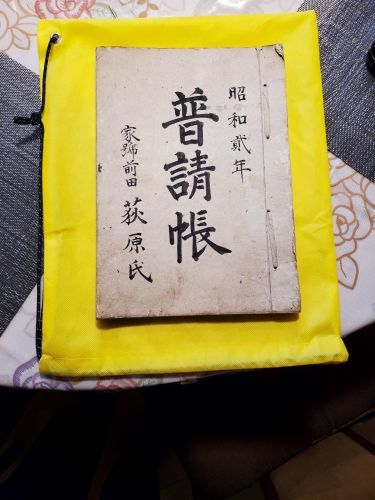 昭和貳年
普請帳
家號前田
荻原氏